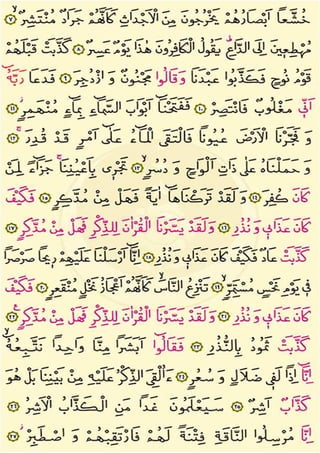 خُشَّعًا اَبْصَارُهُمْ يَخْرُجُونَ مِنَ الْاَجْدَاثِ كَاَنَّهُمْ جَرَادٌ مُنْتَشِرٌۙ ﴿٧﴾
مُهْطِعٖينَ اِلَى الدَّاعِؕ يَقُولُ الْكَافِرُونَ هٰذَا يَوْمٌ عَسِرٌ ﴿٨﴾ كَذَّبَتْ قَبْلَهُمْ
قَوْمُ نُوحٍ فَكَذَّبُوا عَبْدَنَا وَقَالُوا مَجْنُونٌ وَازْدُجِرَ ﴿٩﴾ فَدَعَا رَبَّهُٓ
اَنّٖي مَغْلُوبٌ فَانْتَصِرْ ﴿١٠﴾ فَفَتَحْنَٓا اَبْوَابَ السَّمَٓاءِ بِمَٓاءٍ مُنْهَمِرٍؗ ﴿١١﴾
وَفَجَّرْنَا الْاَرْضَ عُيُونًا فَالْتَقَى الْمَٓاءُ عَلٰٓى اَمْرٍ قَدْ قُدِرَۚ ﴿١٢﴾
وَحَمَلْنَاهُ عَلٰى ذَاتِ اَلْوَاحٍ وَدُسُرٍۙ ﴿١٣﴾ تَجْرٖي بِاَعْيُنِنَاۚ جَزَٓاءً لِمَنْ
كَانَ كُفِرَ ﴿١٤﴾ وَلَقَدْ تَرَكْنَاهَٓا اٰيَةً فَهَلْ مِنْ مُدَّكِرٍ ﴿١٥﴾ فَكَيْفَ
كَانَ عَذَابٖي وَنُذُرِ ﴿١٦﴾ وَلَقَدْ يَسَّرْنَا الْقُرْاٰنَ لِلذِّكْرِ فَهَلْ مِنْ مُدَّكِرٍ ﴿١٧﴾
كَذَّبَتْ عَادٌ فَكَيْفَ كَانَ عَذَابٖي وَنُذُرِ ﴿١٨﴾ اِنَّٓا اَرْسَلْنَا عَلَيْهِمْ رٖيحًا صَرْصَرًا
فٖي يَوْمِ نَحْسٍ مُسْتَمِرٍّۙ ﴿١٩﴾ تَنْزِعُ النَّاسَۙ كَاَنَّهُمْ اَعْجَازُ نَخْلٍ مُنْقَعِرٍ ﴿٢٠﴾ فَكَيْفَ
كَانَ عَذَابٖي وَنُذُرِ ﴿٢١﴾ وَلَقَدْ يَسَّرْنَا الْقُرْاٰنَ لِلذِّكْرِ فَهَلْ مِنْ مُدَّكِرٍ ﴿٢٢﴾
كَذَّبَتْ ثَمُودُ بِالنُّذُرِ ﴿٢٣﴾ فَقَالُٓوا اَبَشَرًا مِنَّا وَاحِدًا نَتَّبِعُهُٓۙ
اِنَّٓا اِذًا لَفٖي ضَلَالٍ وَسُعُرٍ ﴿٢٤﴾ ءَاُلْقِيَ الذِّكْرُ عَلَيْهِ مِنْ بَيْنِنَا بَلْ هُوَ
كَذَّابٌ اَشِرٌ ﴿٢٥﴾ سَيَعْلَمُونَ غَدًا مَنِ الْكَذَّابُ الْاَشِرُ ﴿٢٦﴾
اِنَّا مُرْسِلُوا النَّاقَةِ فِتْنَةً لَهُمْ فَارْتَقِبْهُمْ وَاصْطَبِرْؗ ﴿٢٧﴾